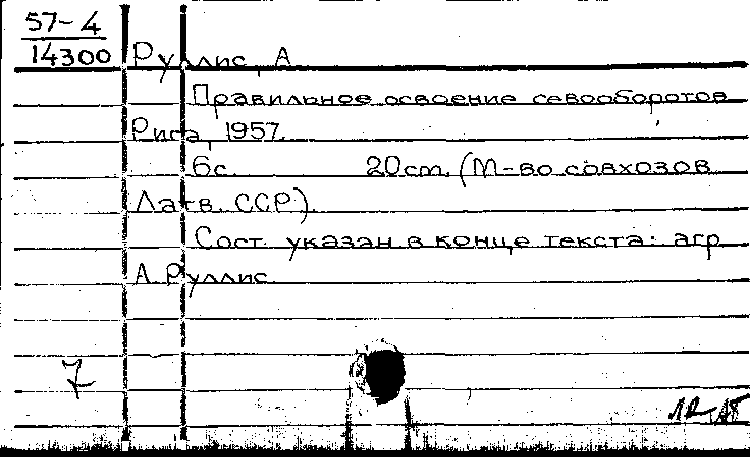 57-4
14300
Руллис, А.
Правильное освоение севооборотов
Рига, 1957.
6с. 20см. (М-во совхозов
Латв. ССР).
Сост. указан в конце текста: агр.
А. Руллис
7